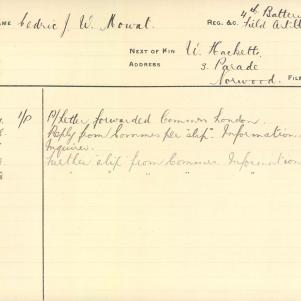 NAME Cedric J. W. Mowat. REG. &C. 4th Batter
Field Artill
NEXT OF KIN W. Hackett,
ADDRESS 3. Parade
Norwood. FILE
1/P P/Letter forwarded Commrs London.
Reply from Commrs per "slip". Information.
Inquiries.
Further slip from Commrs. Information
" " " "